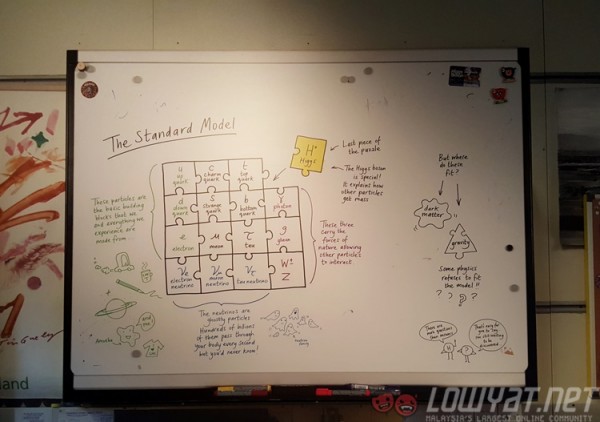 The Standard Model
u
up
quark
c
charm
quark
t
top
quark
d
down
quark
s
strange
quark
b
bottom
quark
photon
e
electron
μ
muon
τ
tau
g
gluon
νe
electron
neutrino
νμ
muon
neutrino
ντ
tau neutrino
W±
Z
H°
Higgs
Last piece of
the puzzle
The Higgs boson
is special!
It explains how
other particles
get mass
These particles are
the basic building
blocks that we
and everything we
experience are
made from
These three
carry the
forces of
nature, allowing
other particles
to interact
The neutrinos are
ghostly particles
Hundreds of billions
of them pass through
your body every second
but you'd never know!
But where
do these
fit?
dark
matter
gravity
Some physics
refuses to fit
the model!!
? ? ? ?
land
LOWYAT.NET
MALAYSIA'S LARGEST ONLINE COMMUNITY